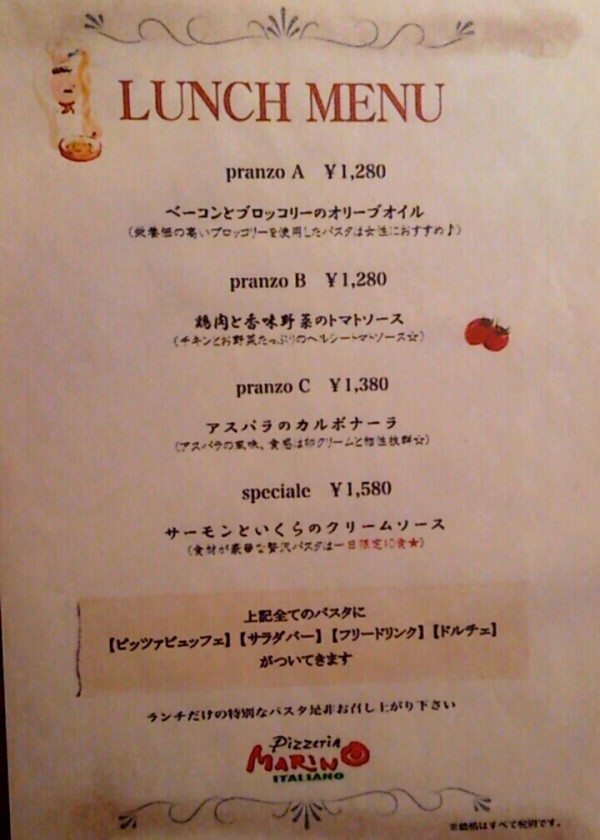 LUNCH MENU
pranzo A ¥1,280
ベーコンとブロッコリーのオリーブオイル
(栄養価の高いブロッコリーを使用したパスタは女性におすすめ♪)
pranzo B ¥1,280
鶏肉と香味野菜のトマトソース
(チキンとお野菜たっぷりのヘルシートマトソース☆)
pranzo C ¥1,380
アスパラのカルボナーラ
(アスパラの風味、食感は卵クリームと相性抜群☆)
speciale ¥1,580
サーモンといくらのクリームソース
(食材が豪華な贅沢パスタは一日限定10食★)
上記全てのパスタに
【ピッツァビュッフェ】【サラダバー】【フリードリンク】【ドルチェ】
がついてきます
ランチだけの特別なパスタ是非お召し上がり下さい
Pizzeria
MARINO
ITALIANO
※価格はすべて税別です。